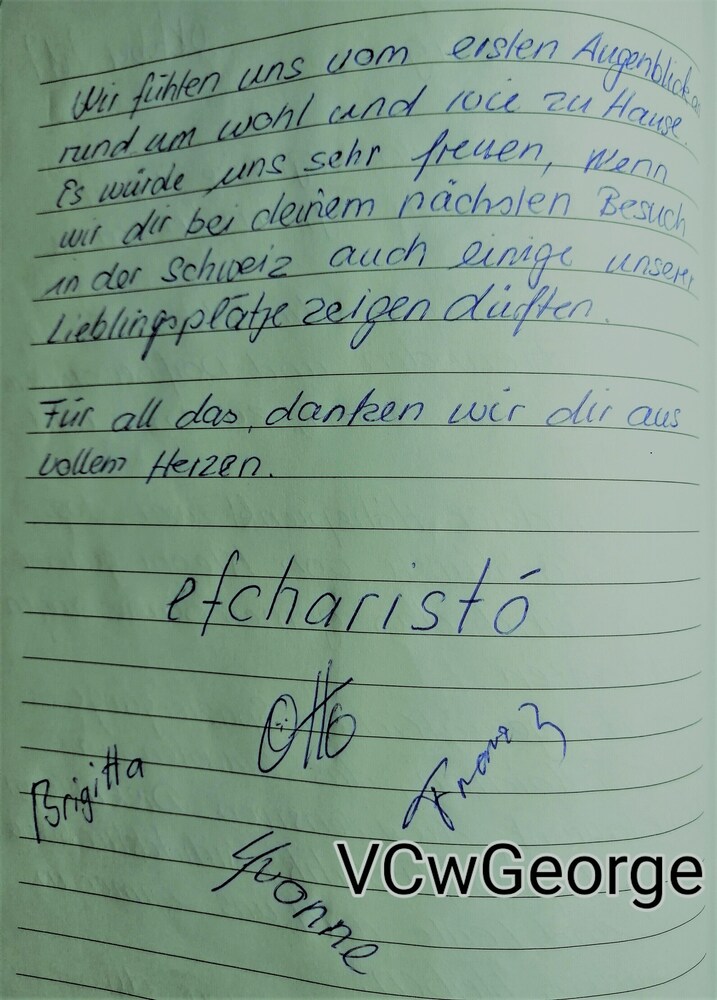 Wir fühlen uns vom ersten Augenblick an
rund um wohl und wie zu Hause.
Es würde uns sehr freuen, wenn
wir dir bei deinem nächsten Besuch
in der Schweiz auch einige unserer
Lieblingsplätze zeigen dürften.
Für all das, danken wir dir aus
vollem Herzen.
efcharistó
Otto
Franz
Brigitta
Yvonne
VCwGeorge